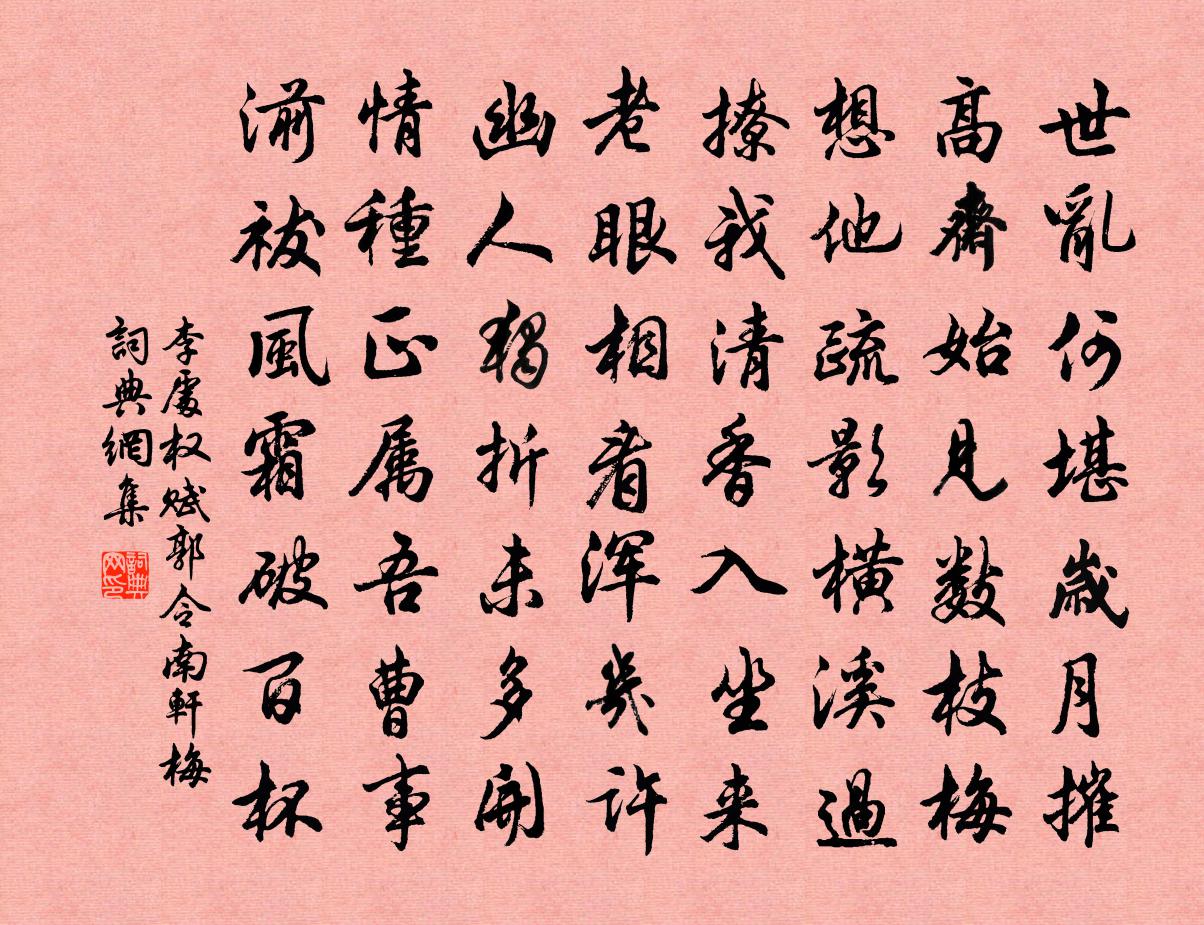 世亂何堪歲月摧
高齋始見數枝梅
想他疏影橫溪過
撩我清香入坐來
老眼相看渾幾許
幽人獨折未多開
情種正属吾曹事
湔祓風霜破百杯
李處权赋郭令南軒梅
詞典網集
詞典网印